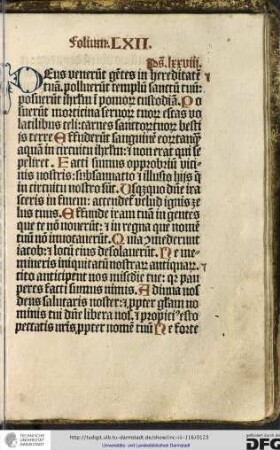 Folium. LXII.
Ps. lxxviii.
DEus venerūt gētes in hereditatē
tuā. polluerūt templū sanctū tuū:
posuerūt ihrlm ī pomoꝝ custodiā. Po
suerūt morticina servoꝝ tuoꝝ escas vo
latilibus celi: carnes sanctoꝝ tuoꝝ besti
is terre Effuderūt sanguinē eoꝝ tanqͣ
aquā in circuitu ihrlm: ⁊ non erat qui se
peliret. Facti sumus opprobriū vici
nis nostris: subsannatio ⁊ illusio hijs qͥ
in circuitu nostro sūt. Usqꝫquo dn̄e ira
sceris in finem: accendet̄ velud ignis ze
lus tuus. Effunde iram tuā in gentes
que te nō noverūt: ⁊ in regna que nomē
tuū nō invocaverūt. Quia ꝯmederunt
iacob: ⁊ locū eius desolaverūt. Ne me-
mineris iniquitatū nostraꝝ antiquaꝝ.
cito anticipent nos misc̄die tue: qꝛ pau
peres facti sumus nimis. Adiuva nos
deus salutaris noster: ⁊ ꝓpter gl̄iam no
minis tui dn̄e libera nos. ⁊ propici⁹ esto
peccatis nr̄is, ꝓpter nomē tuū Ne forte
http://tudigit.ulb.tu-darmstadt.de/show/inc-iii-116/0123
Universitäts- und Landesbibliothek Darmstadt
TECHNISCHE
UNIVERSITÄT
DARMSTADT
gefördert durch die
DFG